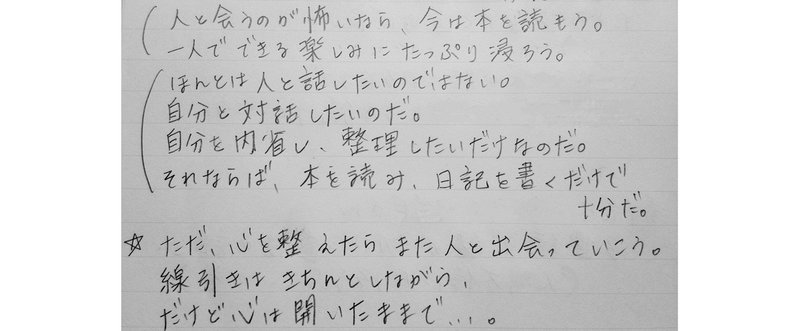 人と会うのが怖いなら、今は本を読もう。
一人でできる楽しみにたっぷり浸ろう。
ほんとは人と話したいのではない。
自分と対話したいのだ。
自分を内省し、整理したいだけなのだ。
それならば、本を読み、日記を書くだけで
十分だ。
☆ ただ、心を整えたらまた人と出会っていこう。
線引きはきちんとしながら、
だけど心は開いたままで…。